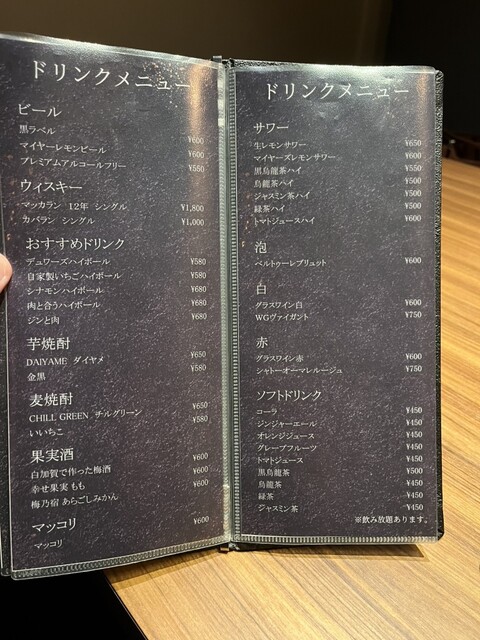 ドリンクメニュー
ビール
黒ラベル ¥600
マイヤーレモンビール ¥600
プレミアムアルコールフリー ¥550
ウィスキー
マッカラン 12年 シングル ¥1,800
カバラン シングル ¥1,000
おすすめドリンク
デュワーズハイボール ¥580
自家製いちごハイボール ¥580
シナモンハイボール ¥680
肉と合うハイボール ¥680
ジンと肉 ¥680
芋焼酎
DAIYAME ダイヤメ ¥650
金黒 ¥580
麦焼酎
CHILL GREEN チルグリーン ¥650
いいちこ ¥580
果実酒
白加賀で作った梅酒 ¥600
幸せ果実 もも ¥600
梅乃宿 あらごしみかん ¥600
マッコリ
マッコリ ¥600
ドリンクメニュー
サワー
生レモンサワー ¥650
マイヤーズレモンサワー ¥600
黒烏龍茶ハイ ¥550
烏龍茶ハイ ¥500
ジャスミン茶ハイ ¥500
緑茶ハイ ¥500
トマトジュースハイ ¥600
泡
ベルトゥーレブリュット ¥600
白
グラスワイン白 ¥600
WGヴァイガント ¥750
赤
グラスワイン赤 ¥600
シャトーオーマレルージュ ¥750
ソフトドリンク
コーラ ¥450
ジンジャーエール ¥450
オレンジジュース ¥450
グレープフルーツ ¥450
トマトジュース ¥450
黒烏龍茶 ¥500
烏龍茶 ¥450
緑茶 ¥450
ジャスミン茶 ¥450
※飲み放題あります。